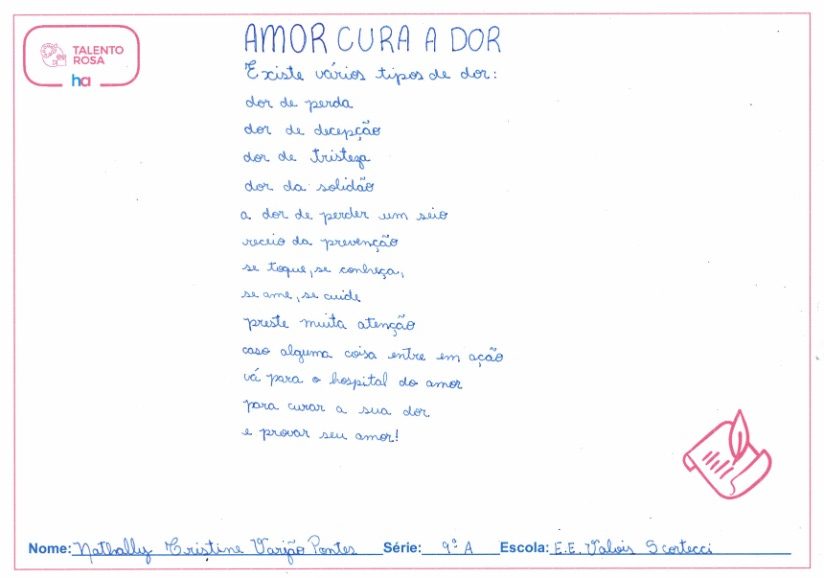 TALENTO
ROSA
ha
AMOR CURA A DOR
Existe vários tipos de dor:
dor de perda
dor de decepção
dor de tristeza
dor da solidão
a dor de perder um seio
receio da prevenção
se toque, se conheça,
se ame, se cuide
preste muita atenção
caso alguma coisa entre em ação
vá para o hospital do amor
para curar a sua dor
e provar seu amor!
Nome: Nathally Cristine Varjão Pontes Série: 9º A Escola: E.E. Valois Scortecci